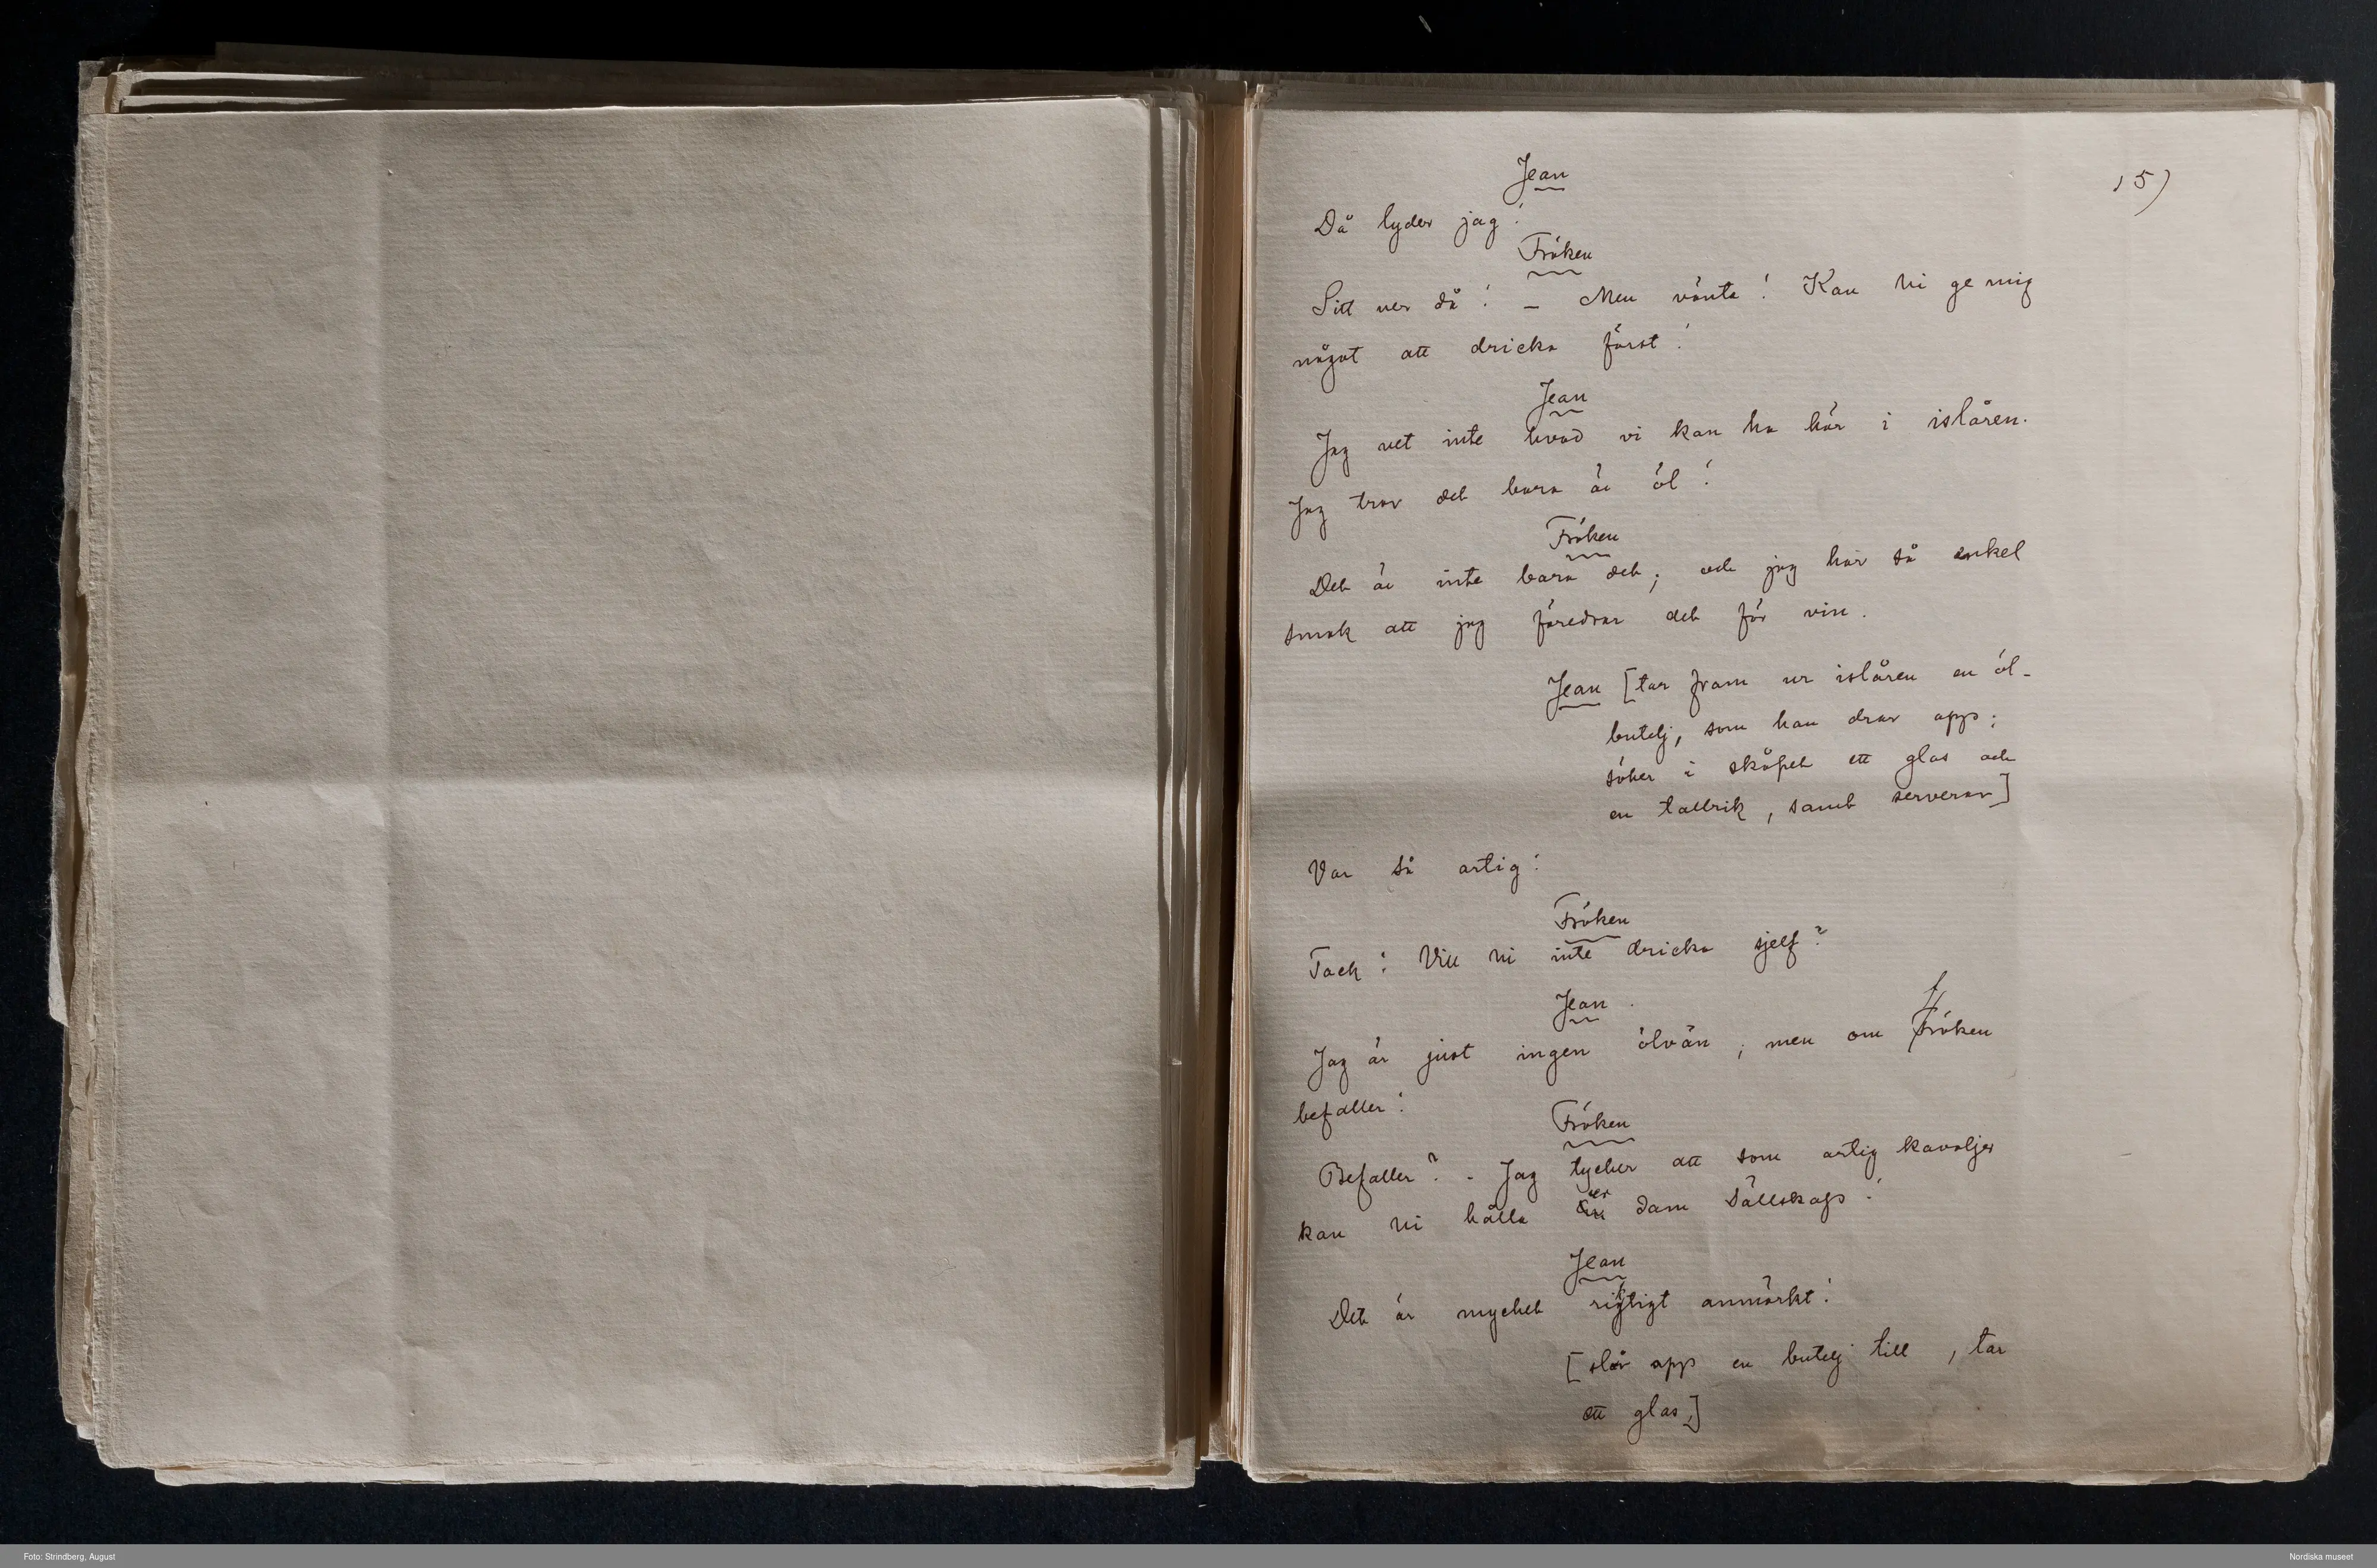 Jean
15)
Då lyder jag!
Fröken
Sitt ner då! – Men vänta! Kan Ni ge mig
något att dricka först!
Jean
Jag vet inte hvad vi kan ha här i islåren.
Jag tror det bara är öl!
Fröken
Det är inte bara det; och jag har så enkel
smak att jag föredrar det för vin.
Jean [tar fram ur islåren en öl-
butelj, som han drar opp;
söker i skåpet ett glas och
en tallrik, samt serverar]
Var så artig!
Fröken
Tack! Vill Ni inte dricka sjelf?
Jean.
Jag är just ingen ölvän; men om fröken
befaller!
Fröken
Befaller? – Jag tycker att som artig kavaljer
kan Ni hålla er dam sällskap!
Jean
Det är mycket riktigt anmärkt!
[slår opp en butelj till, tar
ett glas.]
Foto: Strindberg, August
Nordiska museet